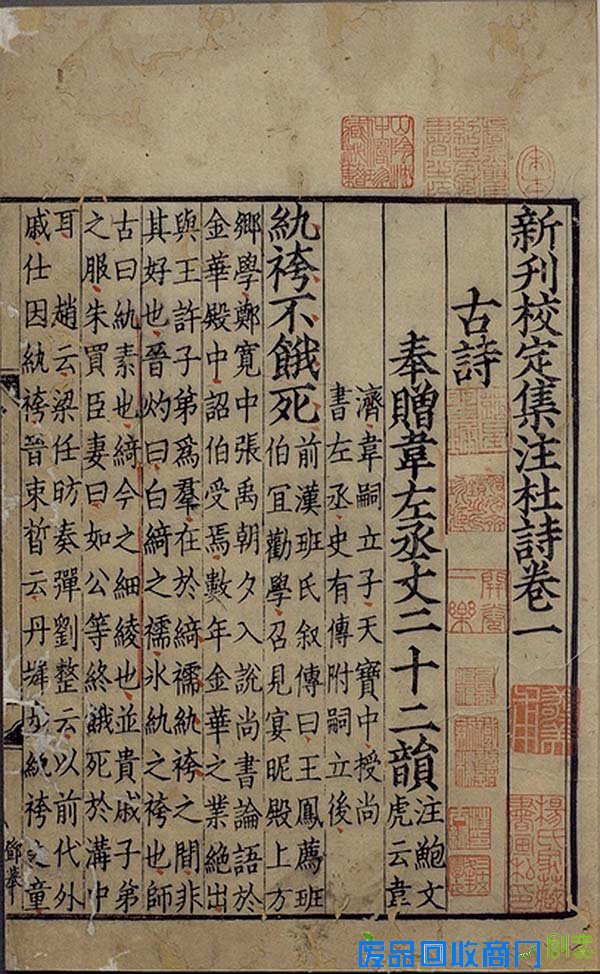 新刊校定集注杜詩卷一
古詩
奉贈韋左丞丈二十二韻
注鮑文
虎云韋
濟韋嗣立子天寶中授尚
書左丞史有傳附嗣立後
紈袴不餓死
前漢班氏叙傳曰王鳳薦班
伯宜勸學召見宴昵殿上方
鄉學鄭寬中張禹朝夕入說尚書論語於
金華殿中詔伯受焉數年金華之業絕出
與王許子弟爲羣在於綺襦紈袴之間非
其好也晉灼曰白綺之襦氷紈之袴也師
古曰紈素也綺今之細綾也並貴戚子弟
之服朱買臣妻曰如公等終餓死於溝中
耳 趙云梁任昉奏彈劉整云以前代外
戚仕因紈袴晉束晳云丹墀步紈袴之童
鄧舉
废品回收商网